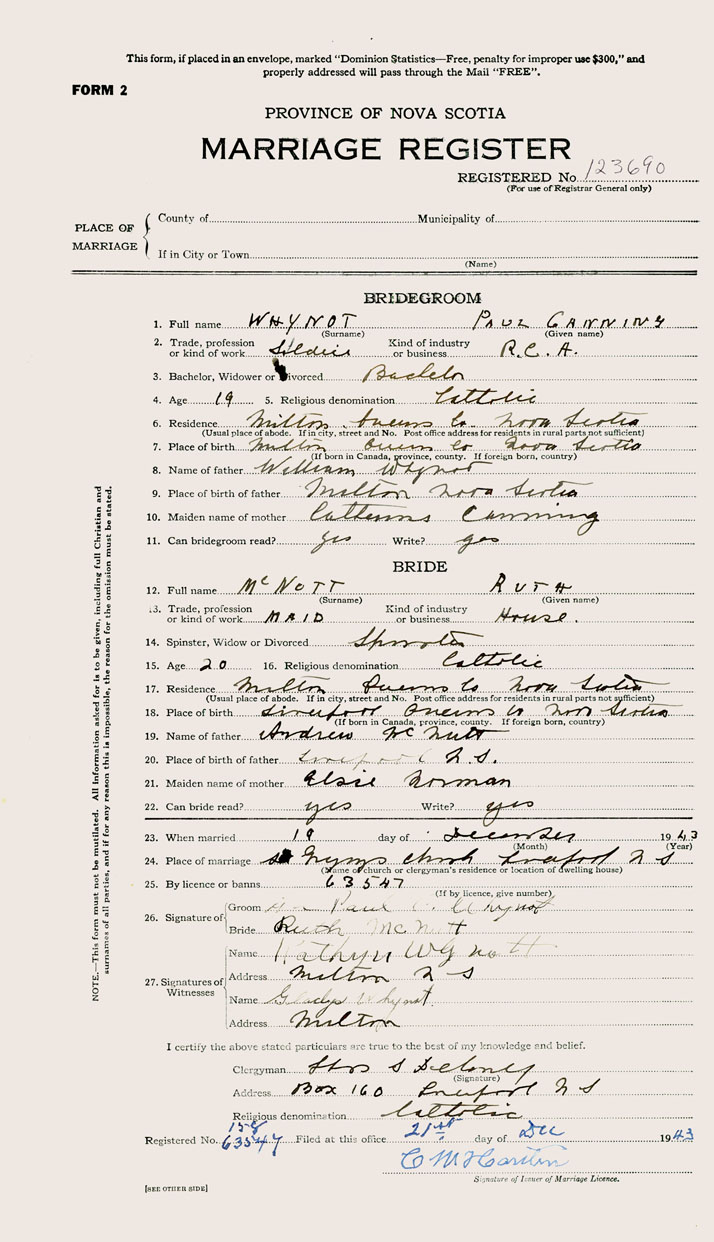 This form, if placed in an envelope, marked “Dominion Statistics—Free, penalty for improper use $300,” and
properly addressed will pass through the Mail “FREE”.
FORM 2
PROVINCE OF NOVA SCOTIA
MARRIAGE REGISTER
REGISTERED No. 123690
(For use of Registrar General only)
PLACE OF MARRIAGE
County of Municipality of
If in City or Town
(Name)
BRIDEGROOM
1. Full name WHYNOT PAUL CANNING
(Surname) (Given name)
2. Trade, profession or kind of work Soldier Kind of industry or business R.C.A.
3. Bachelor, Widower or Divorced Bachelor
4. Age 19 5. Religious denomination Catholic
6. Residence Milton Queens Co Nova Scotia
(Usual place of abode. If in city, street and No. Post office address for residents in rural parts not sufficient)
7. Place of birth Milton Queens Co Nova Scotia
(If born in Canada, province, county. If foreign born, country)
8. Name of father William Whynot
9. Place of birth of father Milton Nova Scotia
10. Maiden name of mother Canning
11. Can bridegroom read? yes Write? yes
BRIDE
12. Full name McNOTT RUTH
(Surname) (Given name)
13. Trade, profession or kind of work MAID Kind of industry or business House.
14. Spinster, Widow or Divorced Spinster
15. Age 20 16. Religious denomination Catholic
17. Residence Milton Queens Co Nova Scotia
(Usual place of abode. If in city, street and No. Post office address for residents in rural parts not sufficient)
18. Place of birth Liverpool Queens Co Nova Scotia
(If born in Canada, province, county. If foreign born, country)
19. Name of father Andrew McNutt
20. Place of birth of father Liverpool N.S.
21. Maiden name of mother Elsie Norman
22. Can bride read? yes Write? yes
23. When married 19 day of December 1943
(Month) (Year)
24. Place of marriage church Liverpool N S
(Name of church or clergyman's residence or location of dwelling house)
25. By licence or banns 63547
(If by licence, give number)
26. Signature of
Groom Paul C. Whynot
Bride Ruth McNutt
27. Signatures of Witnesses
Name Kathryn Whynott
Address Milton N S
Name Gladys Whynot
Address Milton
I certify the above stated particulars are true to the best of my knowledge and belief.
Clergyman
(Signature)
Address Box 160 Liverpool N S
Religious denomination Catholic
158
Registered No. 63547 Filed at this office 21st day of Dec 1943
Signature of Issuer of Marriage Licence.
[SEE OTHER SIDE]
NOTE.—This form must not be mutilated. All Information asked for is to be given, including full Christian and
surnames of all parties, and if for any reason this is impossible, the reason for the omission must be stated.